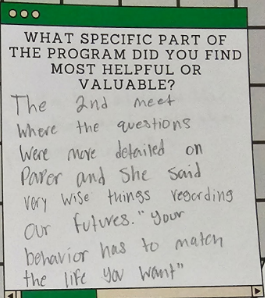 WHAT SPECIFIC PART OF
THE PROGRAM DID YOU FIND
MOST HELPFUL OR
VALUABLE?
The 2nd meet
where the questions
were more detailed on
Paper and She Said
very wise things regarding
our futures. "Your
behavior has to match
the life you want"